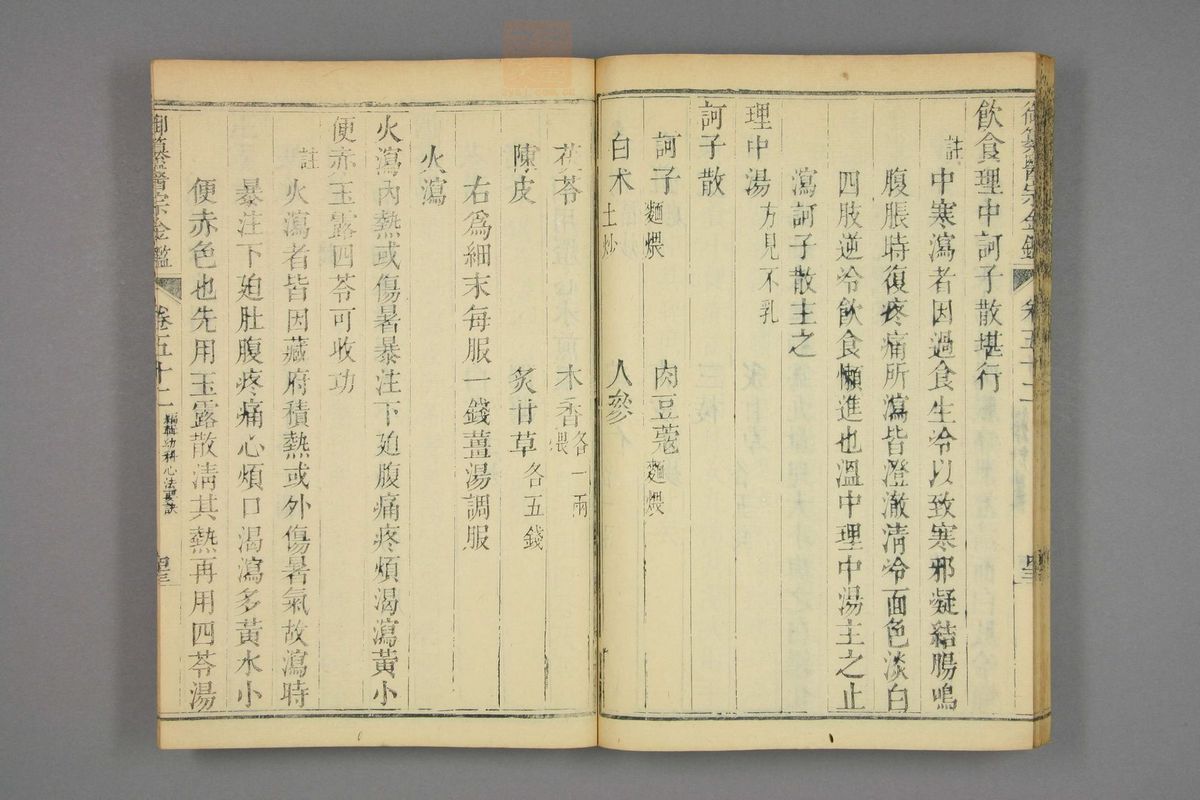 御纂醫宗金鑑 卷五十二
飲食理中訶子散堪行
註 中寒瀉者因過食生冷以致寒邪凝結腸鳴
腹脹時復疼痛所瀉皆澄澈淸冷面色淡白
四肢逆冷飲食懶進也溫中理中湯主之止
瀉訶子散主之
理中湯 方見不乳
訶子散
訶子 麵煨 肉豆蔻 麵煨
白术 土炒 人參
茯苓 木香 煨 各一兩
陳皮 炙甘草 各五錢
右爲細末每服一錢薑湯調服
火瀉
火瀉內熱或傷暑暴注下廹腹痛疼煩渴瀉黃小
便赤玉露四苓可收功
註 火瀉者皆因藏府積熱或外傷暑氣故瀉時
暴注下廹肚腹疼痛心煩口渴瀉多黃水小
便赤色也先用玉露散淸其熱再用四苓湯
御纂醫宗金鑑 卷五十二 編輯幼科心法要訣